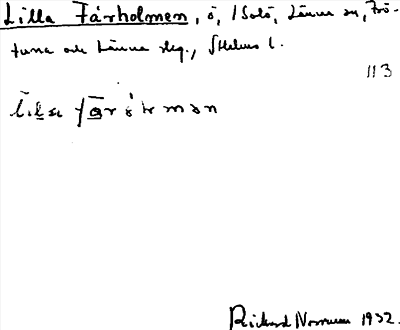 Lilla Fårholmen, ö, i Solö, Länna sn, Frö-
tuna och Länna skg., Sthlms l.
113
Rickard Norrman 1932.